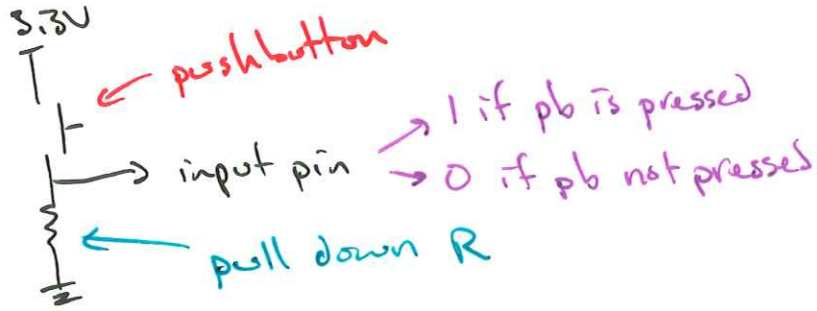 3.3V
pushbutton
input pin
1 if pb is pressed
0 if pb not pressed
pull down R